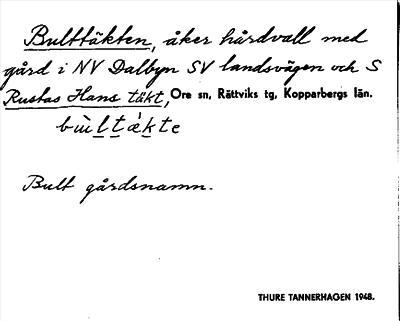 Bulttäkten, åker hårdvall med
gård i NV Dalbyn SV landsvägen och S
Rustas Hans täkt, Ore sn, Rättviks tg, Kopparbergs län.
bùltǽkte
Bult gårdsnamn.
THURE TANNERHAGEN 1948.